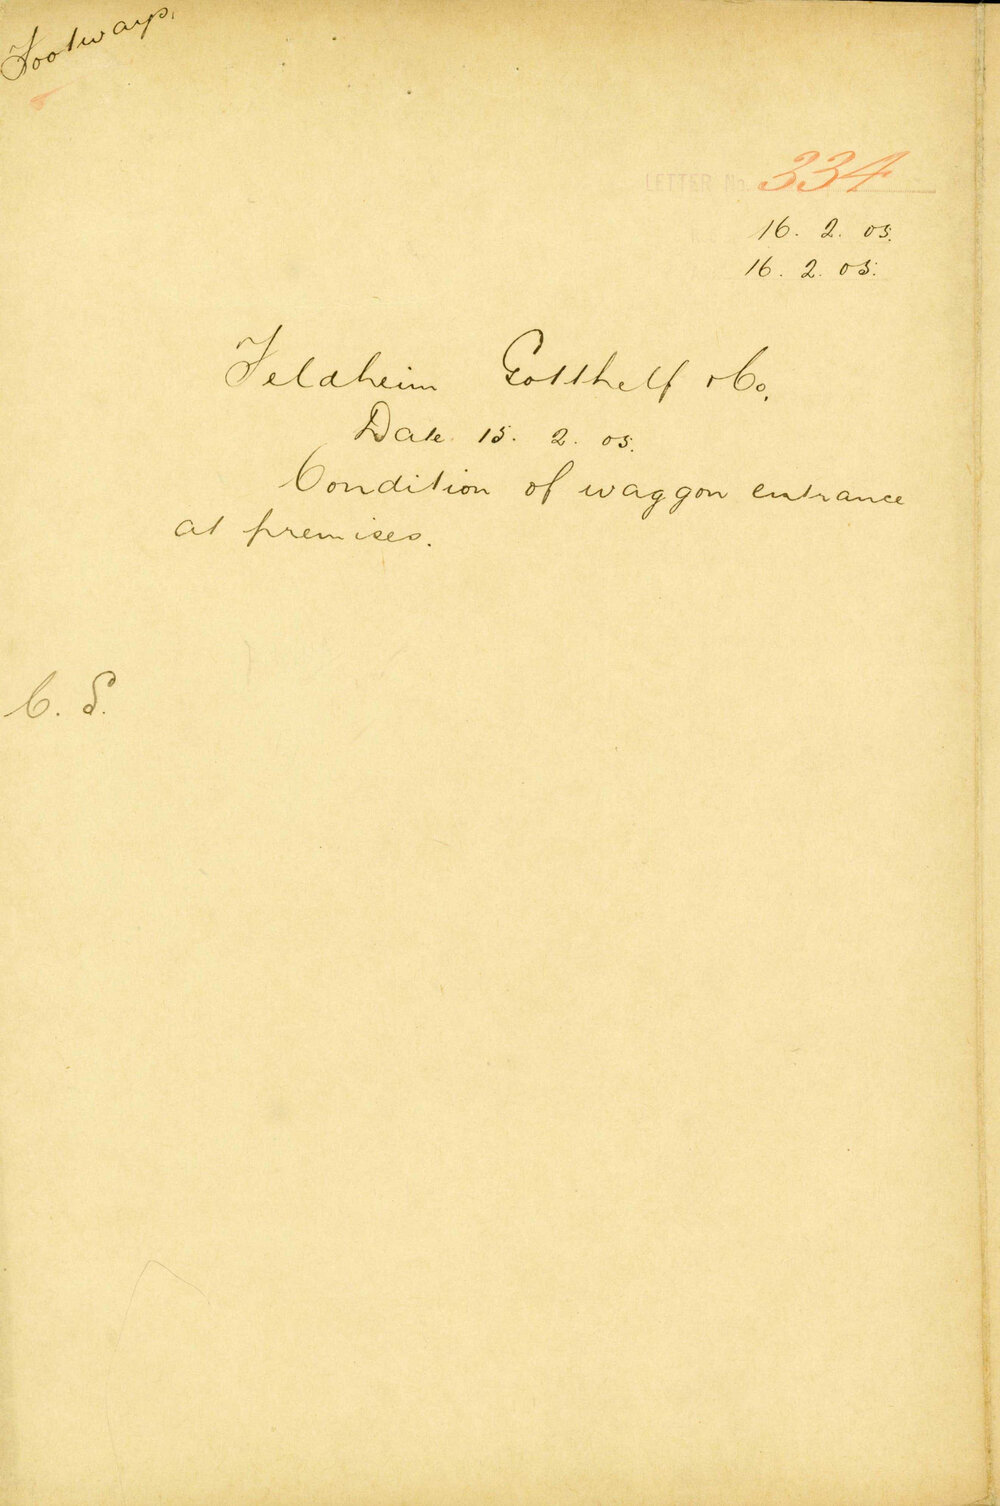 Footways.
LETTER No. 334
16. 2. 05.
16. 2. 05.
Feldheim Gotthelf & Co.
Date 15. 2. 05.
Condition of waggon entrance
at premises.
C. S.